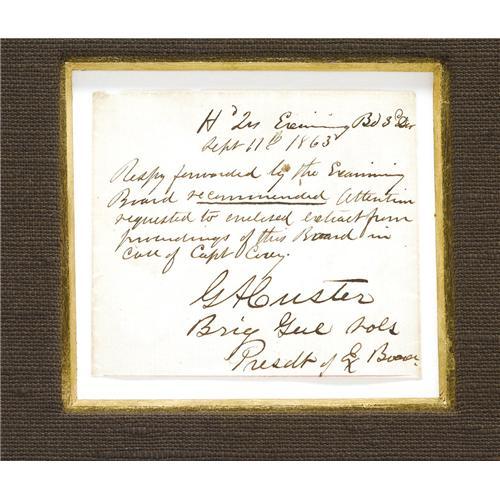 Hd Qrs Examining Bd 3d Div
Sept 11th 1863
Respy forwarded by the Examining
Board recommended Attention
requested to enclosed extract from
proceedings of this Board in
case of Capt Covey.
GA Custer
Brig Genl Vols
Presdt of Ex Board